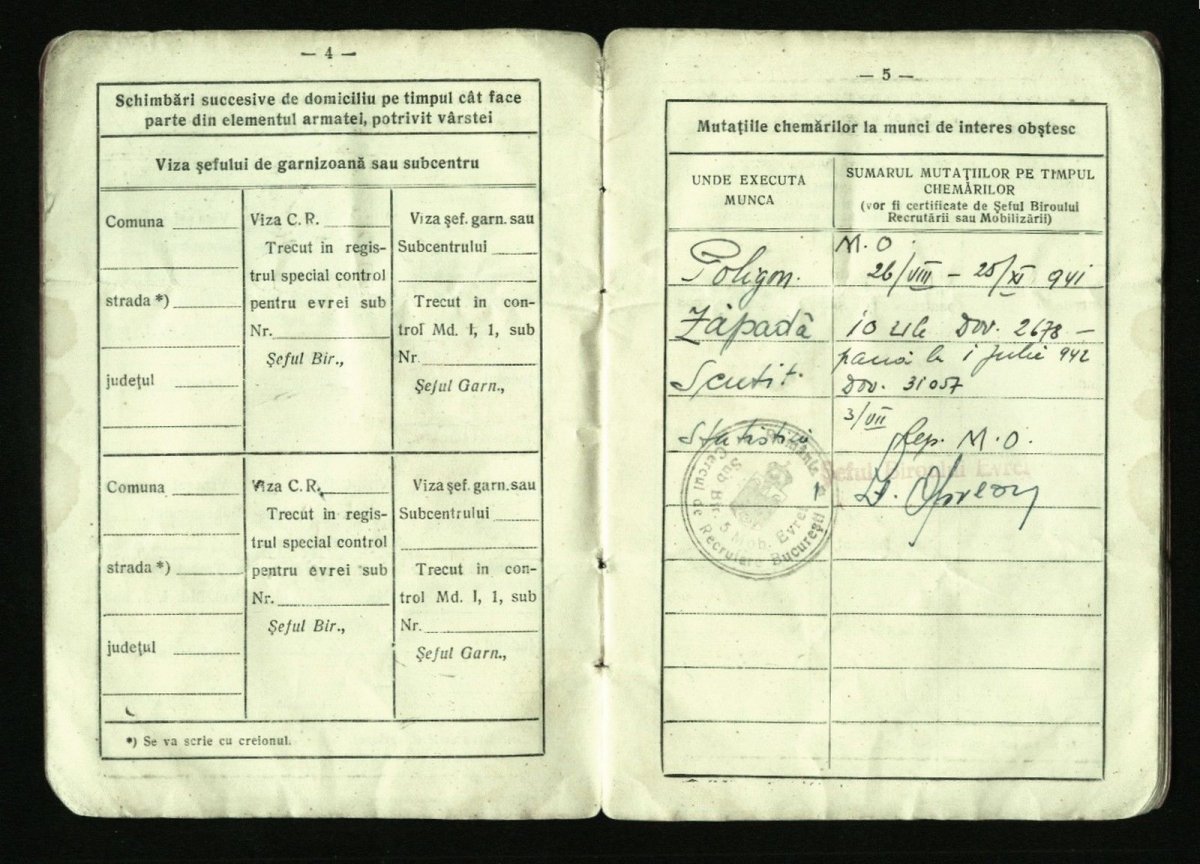 — 4 —
Schimbări succesive de domiciliu pe timpul cât face
parte din elementul armatei, potrivit vârstei
Viza şefului de garnizoană sau subcentru
Comuna
strada *)
judeţul
Viza C. R.
Trecut in regis-
trul special control
pentru evrei sub
Nr.
Şeful Bir.,
Viza şef. garn. sau
Subcentrului
Trecut in con-
trol Md. I, 1, sub
Nr.
Şeful Garn.,
Comuna
strada *)
judeţul
Viza C. R.
Trecut in regis-
trul special control
pentru evrei sub
Nr.
Şeful Bir.,
Viza şef. garn. sau
Subcentrului
Trecut in con-
trol Md. I, 1, sub
Nr.
Şeful Garn.,
*) Se va scrie cu creionul.
— 5 —
Mutaţiile chemărilor la munci de interes obştesc
UNDE EXECUTA
MUNCA
SUMARUL MUTAŢIILOR PE TIMPUL
CHEMĂRILOR
(vor fi certificate de Şeful Biroului
Recrutării sau Mobilizării)
Poligon.
M. O.
26/VIII — 25/XI 941
Zăpadă
10 zile Dov. 2678 —
Scutit.
pană la 1 Julie 942
Dov. 31057
3/VII
Rep. M. O.
Şeful Biroului Evrei
România
Cercul de Recrutare Bucureşti
Sub Bir. 5 Mob. Evrei